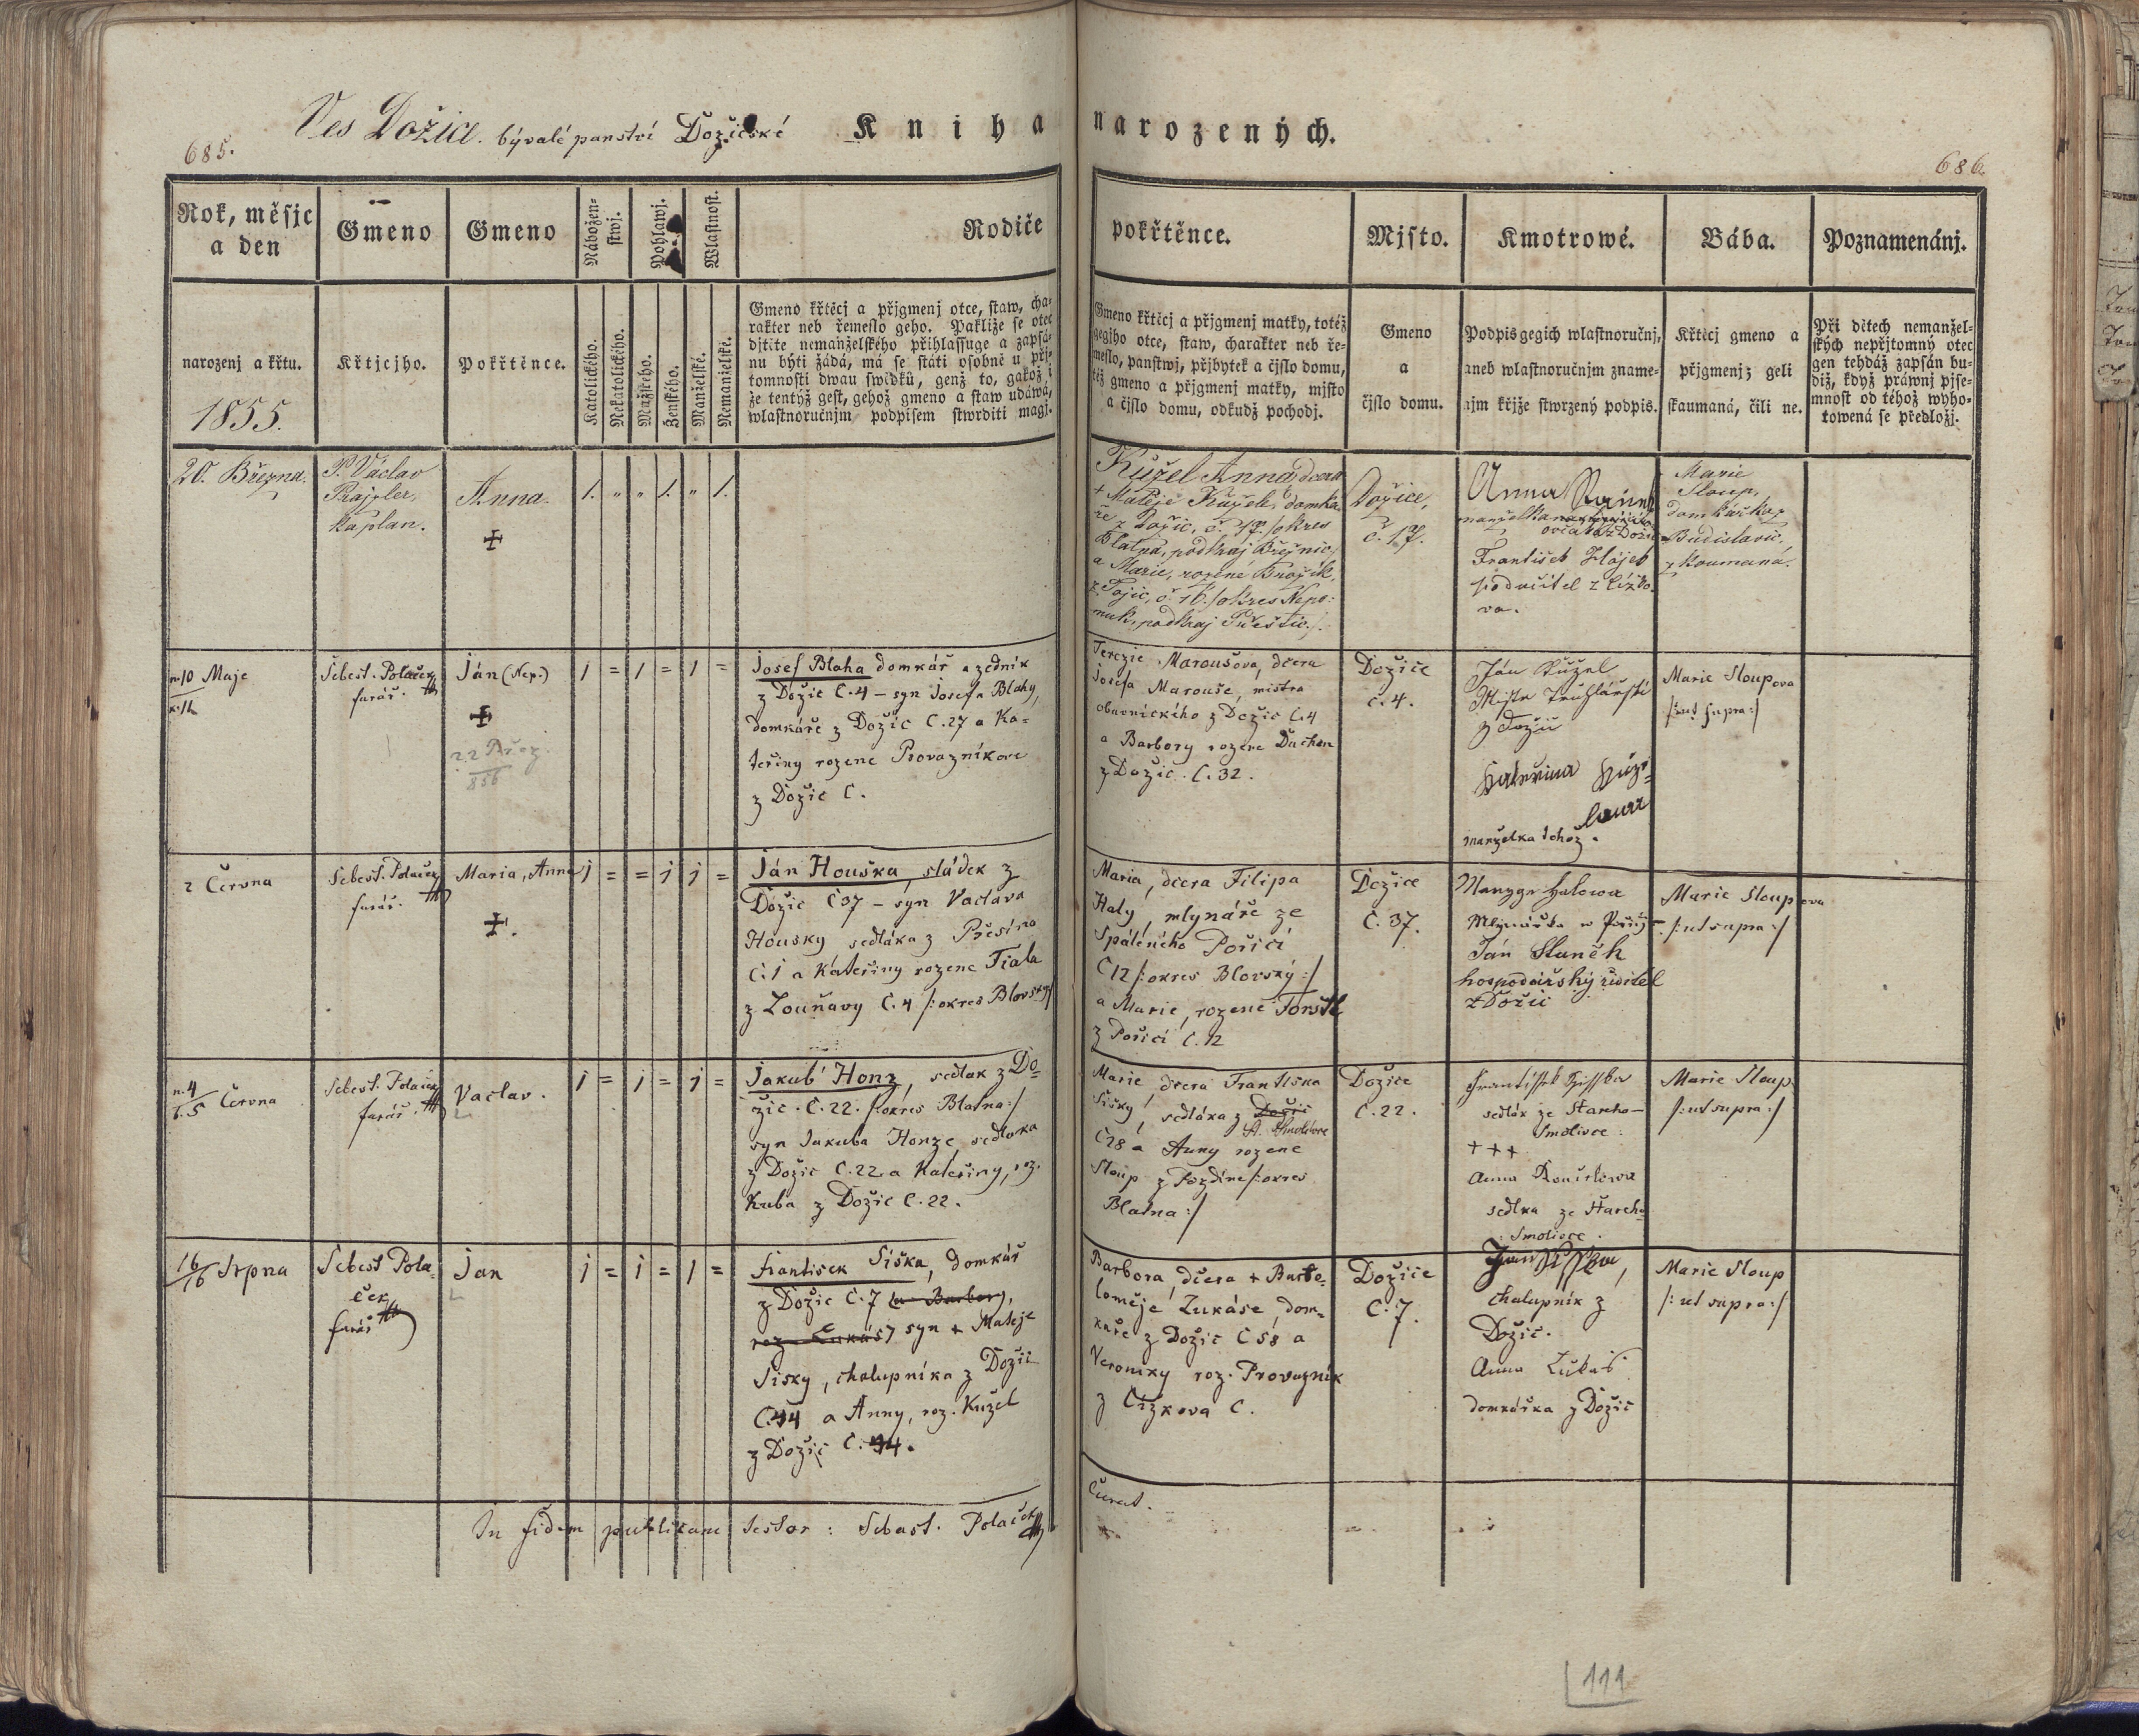 685.
Ves Dožice. bývalé panství Dožické
Kniha narozených.
686.
Rok, měsjc
a den
Gmeno
Gmeno
Nábožen-
stwj.
Pohlawj.
Wlastnost.
Rodiče
pokřtěnce.
Mjsto.
Kmotrowé.
Bába.
Poznamenánj.
narozenj a křtu.
1855.
Křtjcjho.
Pokřtěnce.
Katolického.
Nekatolického.
Mužského.
Ženského.
Manželské.
Nemanželské.
Gmeno křtěcj a přjgmenj otce, staw, cha-
rakter neb řemeslo geho. Pakliže se otec
djtěte nemanželského přihlassuge a zapsá-
nu býti žádá, má se státi osobně u přj-
tomnosti dwau swědků, genž to, gakož i
že tentýž gest, gehož gmeno a staw udáwá,
wlastnoručnjm podpisem stwrditi magj.
Gmeno křtěcj a přjgmenj matky, totéž
gegjho otce, staw, charakter neb ře-
meslo, panstwj, přjbytek a čjslo domu,
též gmeno a přjgmenj matky, mjsto
a čjslo domu, odkudž pochodj.
Gmeno
a
čjslo domu.
Podpis gegich wlastnoručnj,
aneb wlastnoručnjm zname-
njm křjže stwrzený podpis.
Křtěcj gmeno a
přjgmenj; geli
skaumaná, čili ne.
Při dětech nemanžel-
ských nepřjtomný otec
gen tehdáž zapsán bu-
diž, když práwnj pjse-
mnost od téhož wyho-
towená se předložj.
20. Března.
P. Václav
Prajzler,
kaplan.
Anna.
+
1. " " 1. " 1.
Kužel Anna dcera
+ Matěje Kužele, domka-
ře z Dožic, č. 17. /okres
Blatna, podkraj Březnic/
a Marie, rozené Brožík,
z Tojic, č. 16. /okres Nepo-
muk, podkraj Přeštic/.
Dožice,
č. 17.
Anna
manželka
ovčáka z Dožic
František Hájek
podučitel z Čížko-
va.
Marie
Sloup,
domkářka z
Budislavic.
zkoumaná.
n. 10 Maje
k. 11
Sebest. Polaček
farář.
Ján (Nep.)
+
22 Břez.
856
1 = 1 = 1 =
Josef Blaha domkář a zedník
z Dožic Č.4 – syn Josefa Blahy,
domkáře z Dožic Č.27 a Ka-
teřiny rozene Provaznikove
z Dožic Č.
Terezie Maroušova, dcera
Josefa Marouše, mistra
obuvnického z Dožic Č.4
a Barbory rozene Duchon
z Dožic. Č.32.
Dožice
č.4.
Ján Kužel
Mistr Truhlářski
z Dožic
Kateřina Kuže-
lowa
manželka tehož.
Marie Sloupova
/:ut supra:/
2 Června
Sebest. Polaček
farář.
Maria, Anna
+.
1 = = 1 1 =
Ján Houska, sládek z
Dožic Č37 – syn Vaclava
Housky sedláka z Přesína
Č.1 a Kateřiny rozene Fiala
z Louňavy Č.4 /:okres Blovský:/
Maria, dcera Filipa
Haly, mlynáře ze
Spáleného Pořičí
Č12 /:okres Blovský:/
a Marie, rozene Foršt
z Pořičí Č.12
Dožice
Č.37.
Halowa
Mlynářka w Pořičj
Ján Staněk
hospodářský řiditel
z Dožic
Marie Sloupova
/:ut supra:/
n. 4
k. 5 Června
Sebest. Polaček
farář.
Vaclav.
1 = 1 = 1 =
Jakub Honz, sedlak z Do-
žic. Č.22. /:okres Blatna:/
syn Jakuba Honze, sedlaka
z Dožic Č.22. a Kateřiny, roz.
Kuba z Dožic Č.22.
Marie, dcera Frantiska
Sišky, sedláka z Dožic
St. Smolivce
Č28 a Anny rozene
Sloup z Pozdine /:okres
Blatna:/
Dožice
Č.22.
František Šisska
sedlák ze Starcho-
Smolivce.
+++
Anna
sedlka ze Starcho
Smolivce.
Marie Sloup
/:ut supra:/
16/16 Srpna
Sebest. Pola-
ček
farář
Jan
1 = 1 = 1 =
Frantisek Siška, domkář
z Dožic Č.7 (a Barbory,
roz. Lukáš) syn + Mateje
Sisky, chalupníka z Dožic
Č.44 a Anny, roz. Kužel
z Dožic Č. 44.
Barbora, dcera + Barto-
loměje Lukáše, dom-
káře z Dožic Č58 a
Veroniky roz. Provaznik
z Čížkova Č.
Dožice
Č.7.
Jan Šisska,
chalupník z
Dožic.
Anna Lukaš
domkářka z Dožic
Marie Sloup
/:ut supra:/
In fidem publicam testor: Sebast. Polaček
Curat.
111